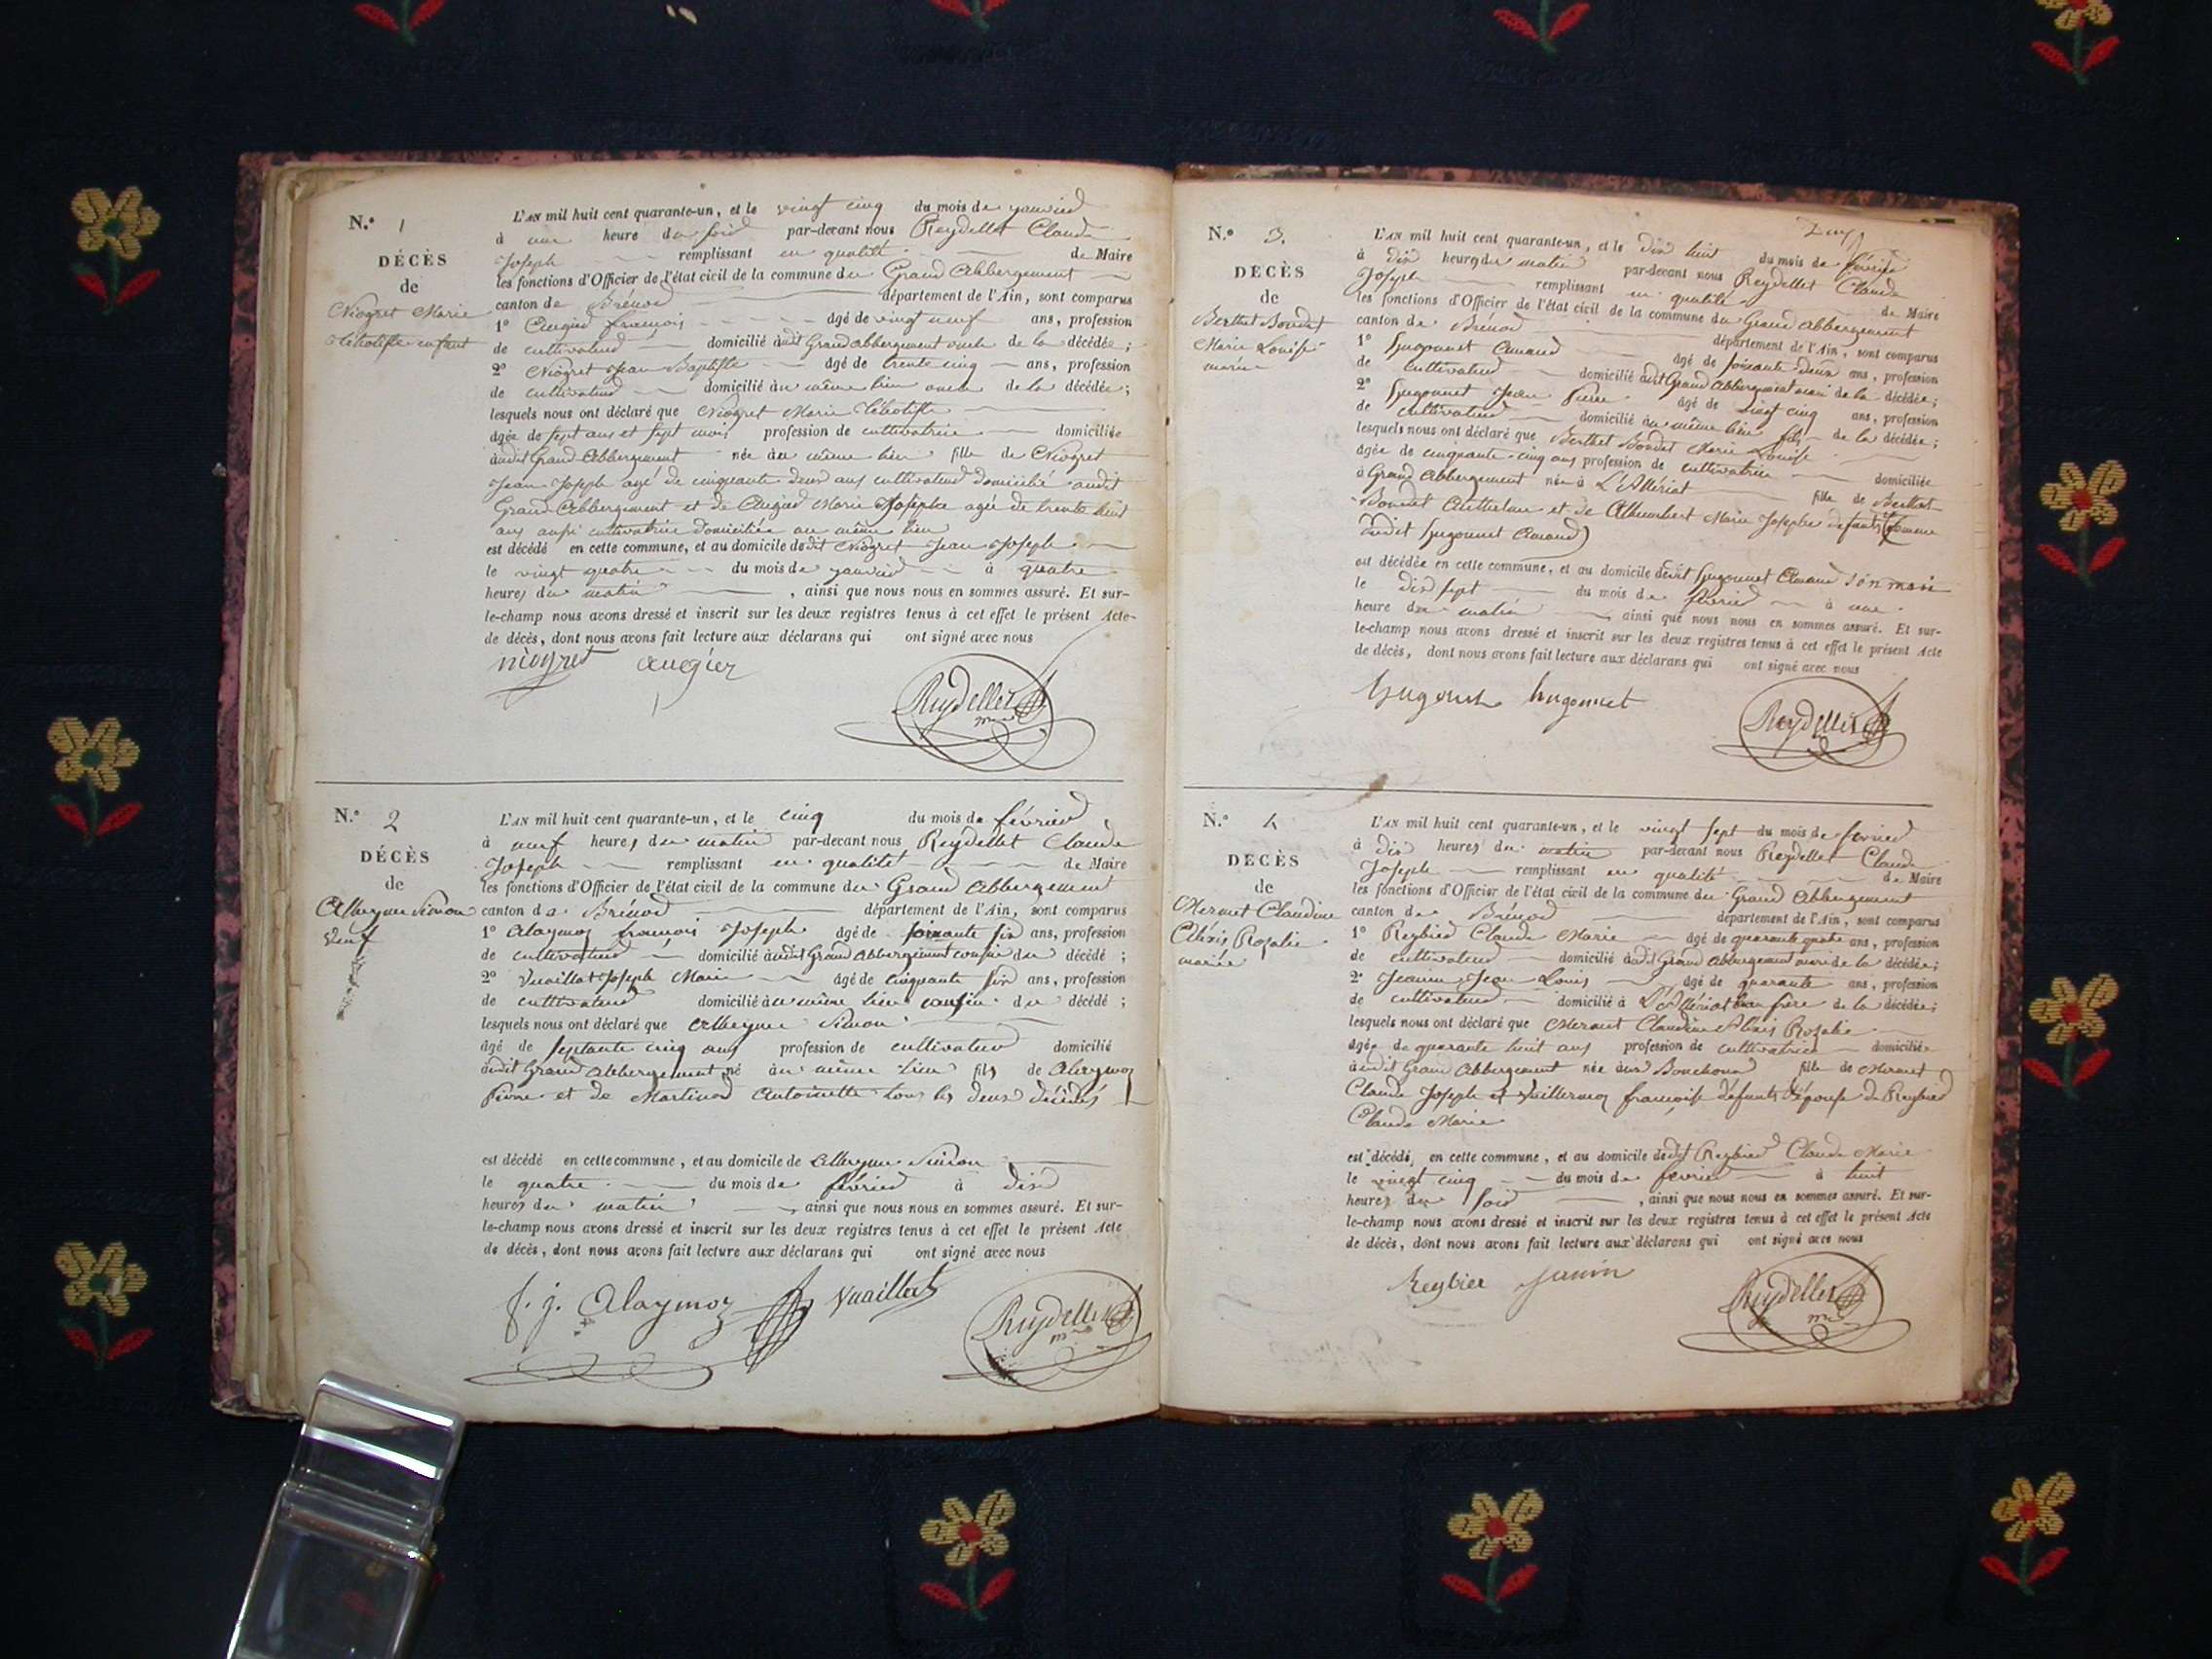 N.° 1
DÉCÈS
de
Niogret Marie
enfant
L'AN mil huit cent quarante-un, et le vingt cinq du mois de janvier
à une heure du soir par-devant nous Reydellet Claude
Joseph remplissant en qualité de Maire
les fonctions d'Officier de l'état civil de la commune du Grand Abbergement
canton de Brénod département de l'Ain, sont comparus
1° Augier françois âgé de vingt neuf ans, profession
de cultivateur domicilié audit Grand abbergement oncle de la décédée ;
2° Niogret Jean Baptiste âgé de trente cinq ans, profession
de cultivateur domicilié au même lieu oncle de la décédée ;
lesquels nous ont déclaré que Niogret Marie
âgée de sept ans et sept mois profession de cultivatrice domiciliée
audit Grand Abbergement née au même lieu fille de Niogret
Jean Joseph agé de cinquante deux ans cultivateur domicilié audit
Grand Abbergement et de Augier Marie Josephe agée de trente huit
ans aussi cultivatrice domiciliée au même lieu
est décédé en cette commune, et au domicile dudit Niogret Jean Joseph
le vingt quatre du mois de janvier à quatre
heures du matin , ainsi que nous nous en sommes assuré. Et sur-
le-champ nous avons dressé et inscrit sur les deux registres tenus à cet effet le présent Acte
de décès, dont nous avons fait lecture aux déclarans qui ont signé avec nous
niogret augier
Reydellet
N.° 2
DÉCÈS
de
Simon
veuf
L'AN mil huit cent quarante-un, et le cinq du mois de février
à neuf heures du matin par-devant nous Reydellet Claude
Joseph remplissant en qualité de Maire
les fonctions d'Officier de l'état civil de la commune du Grand Abbergement
canton de Brénod département de l'Ain, sont comparus
1° Alaymoz francois Joseph âgé de soixante six ans, profession
de cultivateur domicilié audit Grand Abbergement cousin du décédé ;
2° Vuaillat Joseph Marie âgé de cinquante six ans, profession
de cultivateur domicilié au même lieu cousin du décédé ;
lesquels nous ont déclaré que Simon
âgé de septante cinq ans profession de cultivateur domicilié
audit Grand Abbergement né au même lieu fils de
Pierre et de Martinod Antoinette tous les deux décédés
est décédé en cette commune, et au domicile de Simon
le quatre du mois de février à dix
heures du matin , ainsi que nous nous en sommes assuré. Et sur-
le-champ nous avons dressé et inscrit sur les deux registres tenus à cet effet le présent Acte
de décès, dont nous avons fait lecture aux déclarans qui ont signé avec nous
f. j. Alaymoz Vuaillat
Reydellet
N.° 3.
DÉCÈS
de
Berthet Bondet
Marie Louise
mariée
L'AN mil huit cent quarante-un, et le dix huit du mois de février
à dix heures du matin par-devant nous Reydellet Claude
Joseph remplissant en qualité de Maire
les fonctions d'Officier de l'état civil de la commune du Grand Abbergement
canton de Brénod département de l'Ain, sont comparus
1° hugonnet Amand âgé de soixante deux ans, profession
de cultivateur domicilié audit Grand Abbergement mari de la décédée ;
2° hugonnet Jean Pierre âgé de vingt cinq ans, profession
de cultivateur domicilié au même lieu fils de la décédée ;
lesquels nous ont déclaré que Berthet Bondet Marie Louise
âgée de cinquante-cinq ans profession de cultivatrice domiciliée
à Grand Abbergement née à L'Allériat fille de Berthet
Bondet Anthelme et de Marie Josephe defunts (femme
dudit hugonnet Amand)
est décédée en cette commune, et au domicile dudit hugonnet Amand son mari
le dix sept du mois de février à une
heure du matin ainsi que nous nous en sommes assuré. Et sur-
le-champ nous avons dressé et inscrit sur les deux registres tenus à cet effet le présent Acte
de décès, dont nous avons fait lecture aux déclarans qui ont signé avec nous
hugonnet hugonnet
Reydellet
N.° 4
DÉCÈS
de
Mermet Claudine
Alexis Rosalie
mariée
L'AN mil huit cent quarante-un, et le vingt sept du mois de février
à dix heures du matin par-devant nous Reydellet Claude
Joseph remplissant en qualité de Maire
les fonctions d'Officier de l'état civil de la commune du Grand Abbergement
canton de Brénod département de l'Ain, sont comparus
1° Reybier Claude Marie âgé de quarante quatre ans, profession
de cultivateur domicilié audit Grand Abbergement mari de la décédée ;
2° Jean Louis âgé de quarante ans, profession
de cultivateur domicilié à L'Allériat beau frère de la décédée ;
lesquels nous ont déclaré que Mermet Claudine Alexis Rosalie
âgée de quarante huit ans profession de cultivatrice domiciliée
audit Grand Abbergement née aux fille de Mermet
Claude Joseph et Vuillermoz françoise défunts épouse de Reybier
Claude Marie
est décédé, en cette commune, et au domicile dudit Reybier Claude Marie
le vingt cinq du mois de février à huit
heures du soir , ainsi que nous nous en sommes assuré. Et sur-
le-champ nous avons dressé et inscrit sur les deux registres tenus à cet effet le présent Acte
de décès, dont nous avons fait lecture aux déclarans qui ont signé avec nous
Reybier Janin
Reydellet